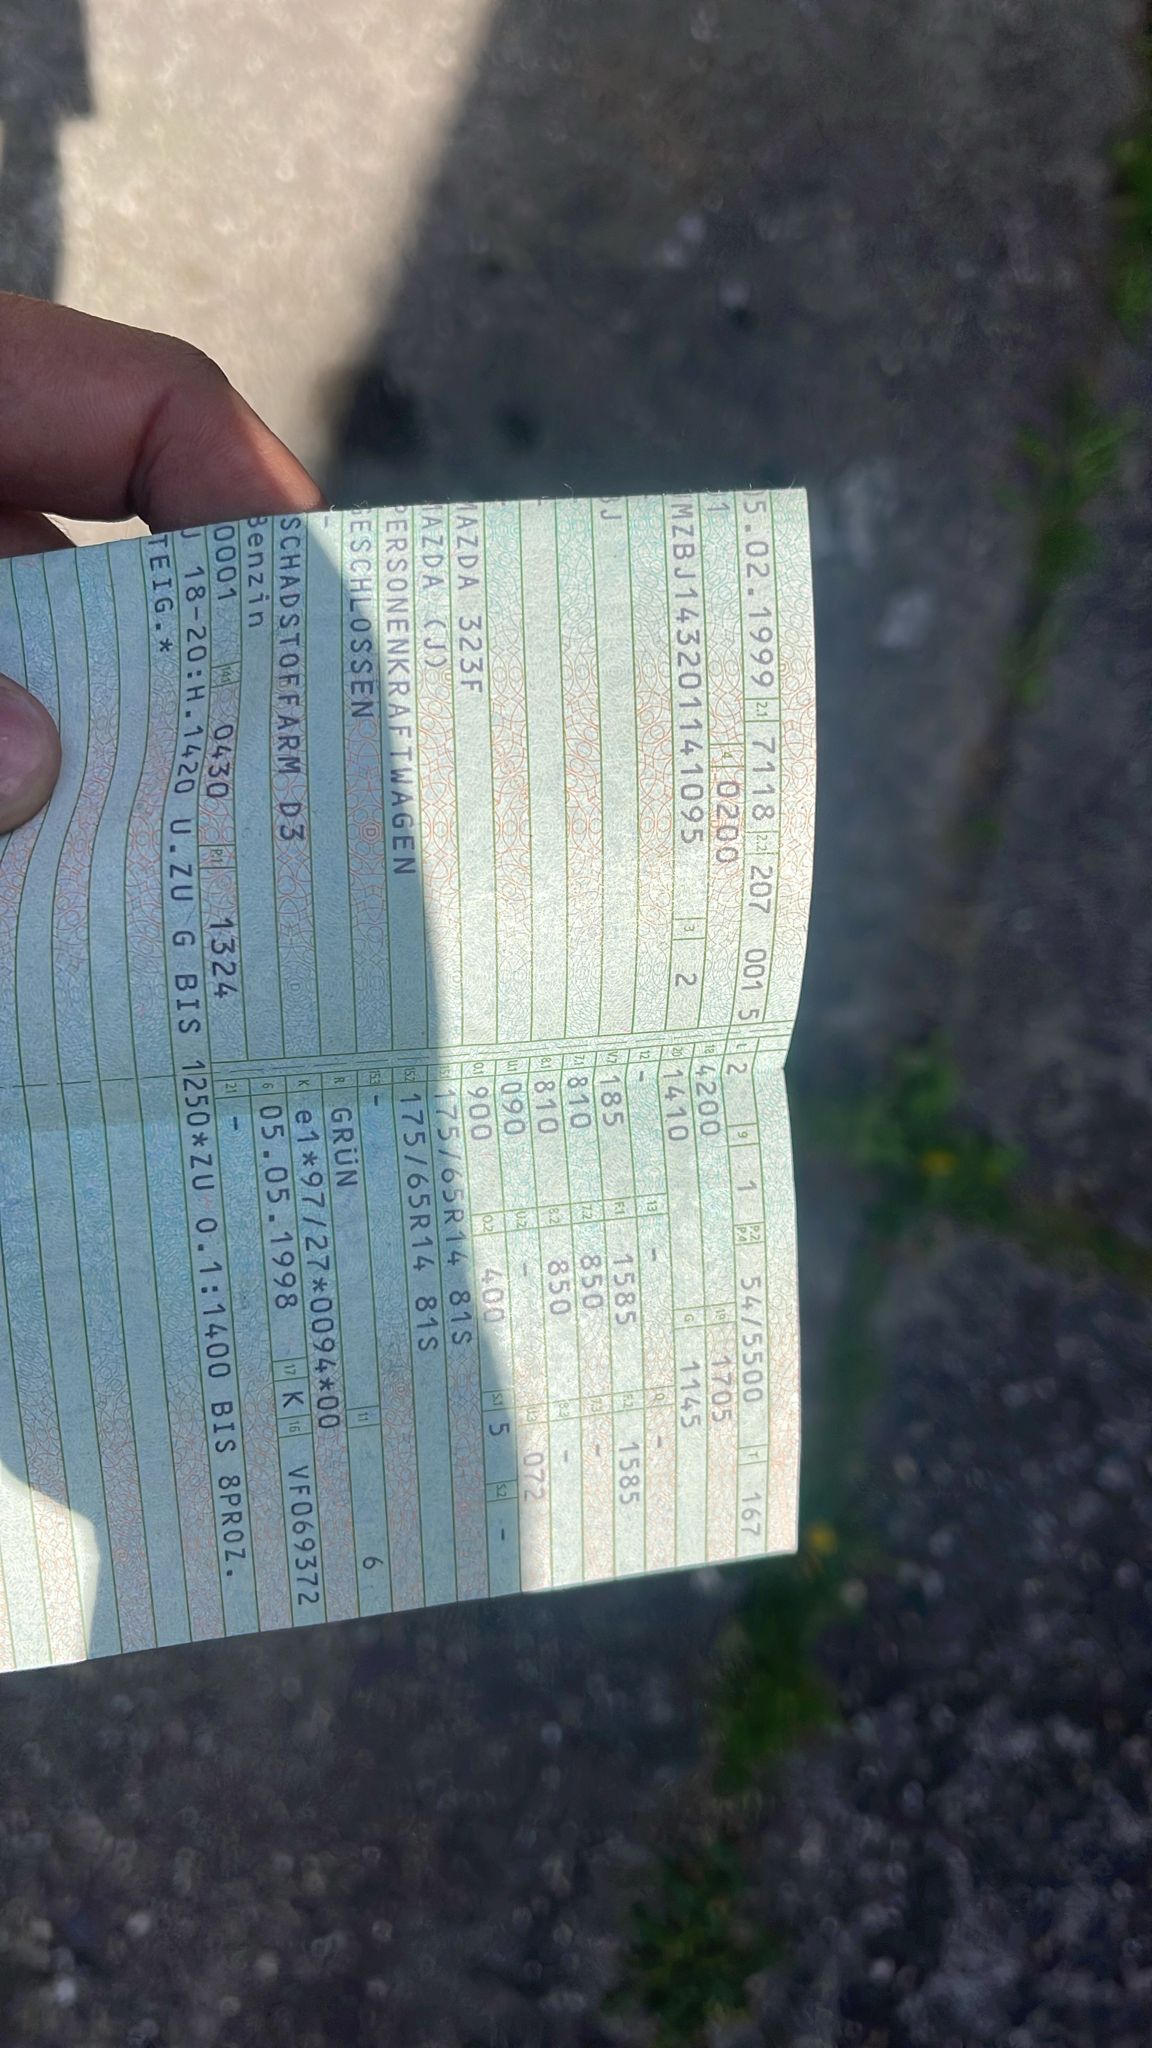 05.02.1999 2.1 7118 2.2 207 001 5 L 2 9 1 P2 P4 54/5500 T 167
1 4 0200 18 4200 19 1705
MZBJ143201141095 3 2 20 1410 G 1145
12 - 13 - Q -
BJ V7 185 F.1 1585 F.2 1585
7.1 810 7.2 850 7.3 -
8.1 810 8.2 850 8.3 -
U.1 090 U.2 - U.3 072
MAZDA 323F O.1 900 O.2 400 S.1 5 S.2 -
MAZDA (J) 15.1 175/65R14 81S
PERSONENKRAFTWAGEN 15.2 175/65R14 81S
GESCHLOSSEN 15.3 -
- R GRÜN 11 6
SCHADSTOFFARM D3 K e1*97/27*0094*00
Benzin 6 05.05.1998 17 K 16 VF069372
0001 14.1 0430 P.1 1324 21 -
J 18-20:H.1420 U.ZU G BIS 1250*ZU O.1:1400 BIS 8PROZ.
STEIG.*